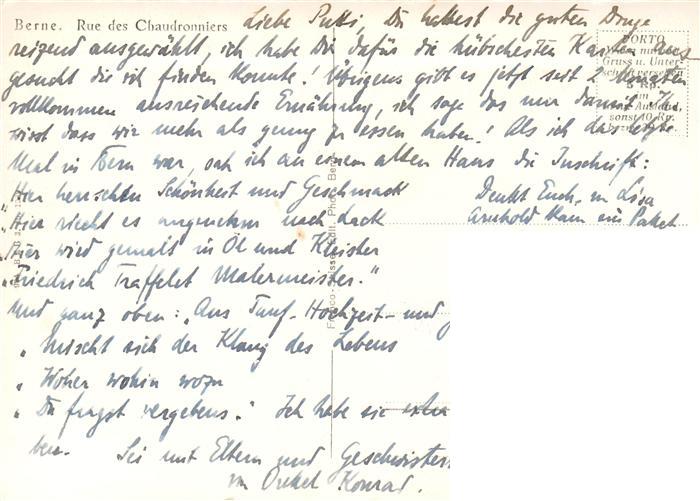 Berne. Rue des Chaudronniers
Liebe Putti, Du hattest die guten Dinge
reizend ausgewählt, ich habe Dir dafür die hübschesten Karten aus-
gesucht die ich finden konnte! Übrigens gibt es jetzt seit 2 Monaten
vollkommen ausreichende Ernährung, ich sage das nur damit Ihr
wisst dass wir mehr als genug zu essen haben! Als ich das letzte
Mal in Bern war, sah ich an einem alten Haus die Inschrift:
"Hier herrschen Schönheit und Geschmack
"Hier riecht es angenehm nach Lack
"Hier wird gemalt in Öl und Kleister
"Friedrich Traffelet Malermeister."
Und ganz oben: "Aus Tauf- Hochzeit- und
"Mischt sich der Klang des Lebens
"Woher wohin wozu
"Du fragst vergebens." Ich habe sie
ben. Sei mit Eltern und Geschwistern
Onkel Konrad.
Denkt Euch, in Lisa
Arnhold kam ein Paket
PORTO
Gruss u. Unter
5 Rp.
sonst 10 Rp.